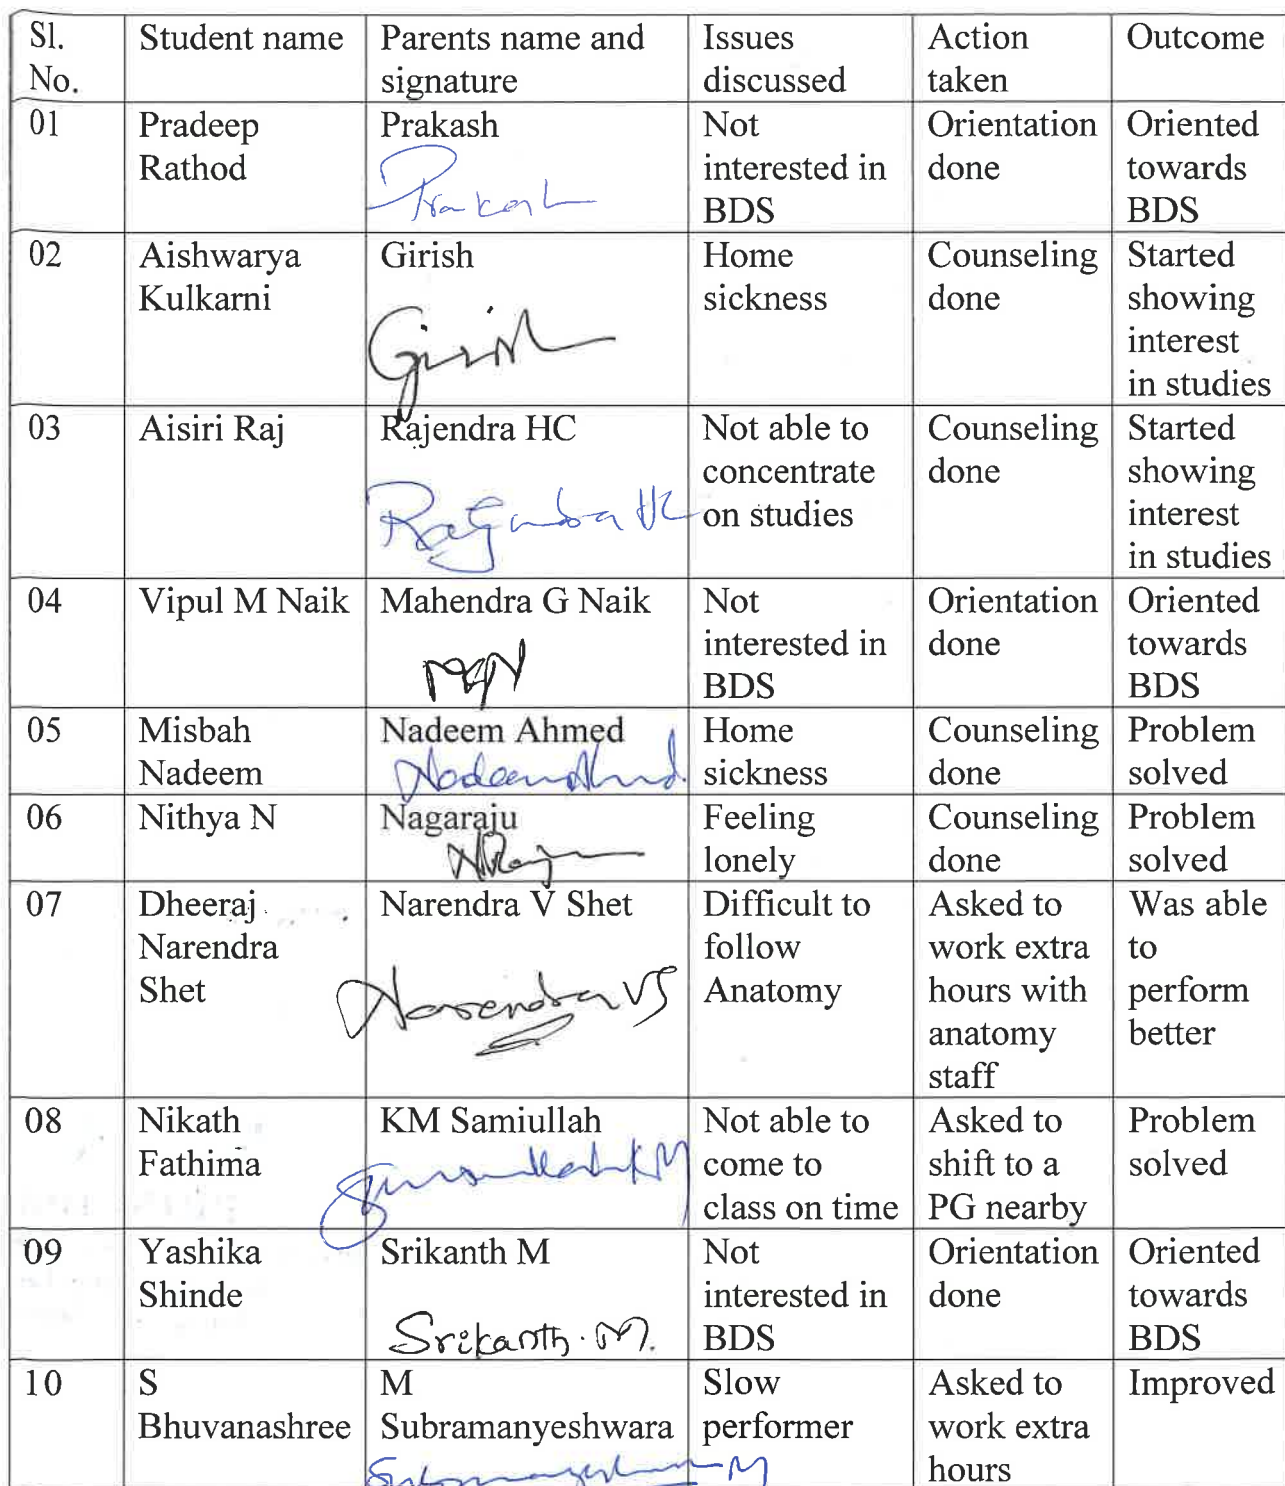 Sl. No. | Student name | Parents name and signature | Issues discussed | Action taken | Outcome
01 | Pradeep Rathod | Prakash Prakash | Not interested in BDS | Orientation done | Oriented towards BDS
02 | Aishwarya Kulkarni | Girish Girish | Home sickness | Counseling done | Started showing interest in studies
03 | Aisiri Raj | Rajendra HC Rajendra HC | Not able to concentrate on studies | Counseling done | Started showing interest in studies
04 | Vipul M Naik | Mahendra G Naik MGN | Not interested in BDS | Orientation done | Oriented towards BDS
05 | Misbah Nadeem | Nadeem Ahmed Nadeem Ahmed | Home sickness | Counseling done | Problem solved
06 | Nithya N | Nagaraju | Feeling lonely | Counseling done | Problem solved
07 | Dheeraj Narendra Shet | Narendra V Shet Narendra VS | Difficult to follow Anatomy | Asked to work extra hours with anatomy staff | Was able to perform better
08 | Nikath Fathima | KM Samiullah Samiullah KM | Not able to come to class on time | Asked to shift to a PG nearby | Problem solved
09 | Yashika Shinde | Srikanth M Srikanth. M. | Not interested in BDS | Orientation done | Oriented towards BDS
10 | S Bhuvanashree | M Subramanyeshwara | Slow performer | Asked to work extra hours | Improved